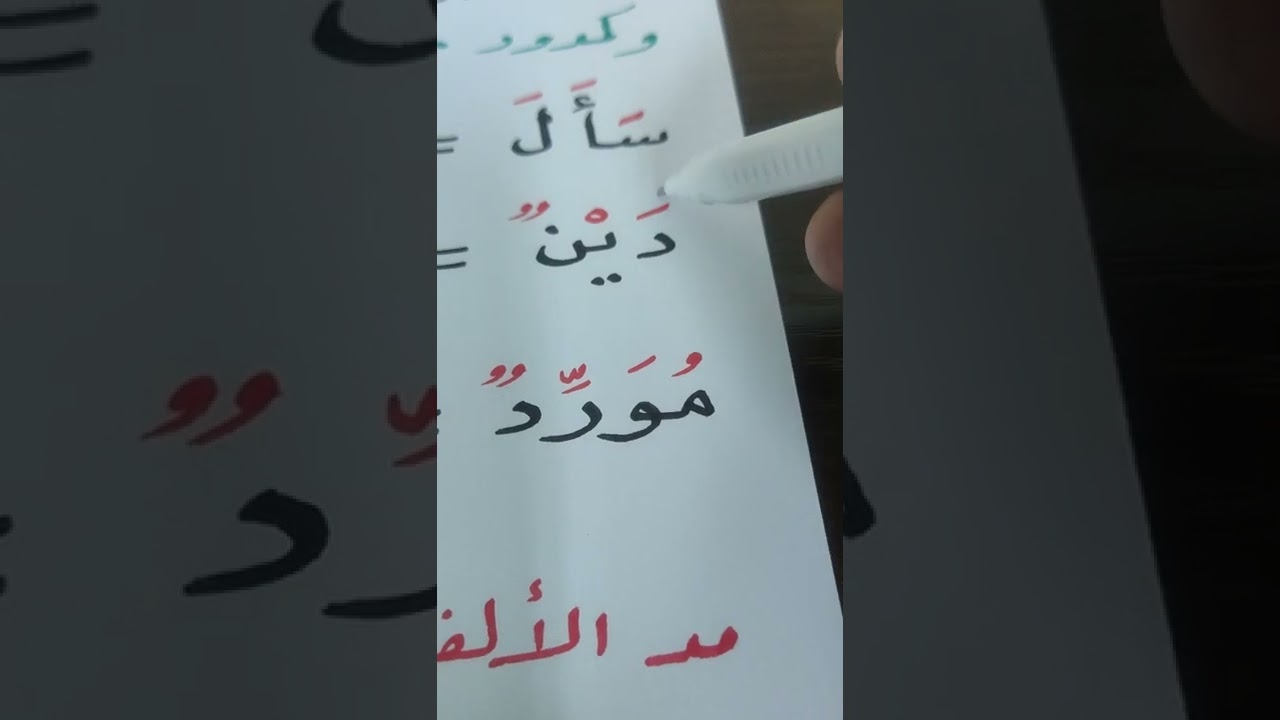 وكمدود
سَأَلَ =
دَيْنٌ =
مُوَرِّدٌ
مد الألف